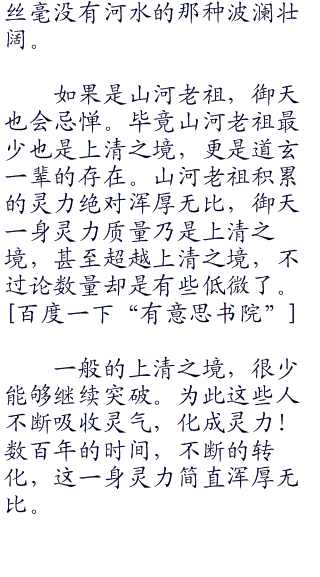 丝毫没有河水的那种波澜壮
阔。
如果是山河老祖，御天
也会忌惮。毕竟山河老祖最
少也是上清之境，更是道玄
一辈的存在。山河老祖积累
的灵力绝对浑厚无比，御天
一身灵力质量乃是上清之
境，甚至超越上清之境，不
过论数量却是有些低微了。
[百度一下“有意思书院”]
一般的上清之境，很少
能够继续突破。为此这些人
不断吸收灵气，化成灵力！
数百年的时间，不断的转
化，这一身灵力简直浑厚无
比。